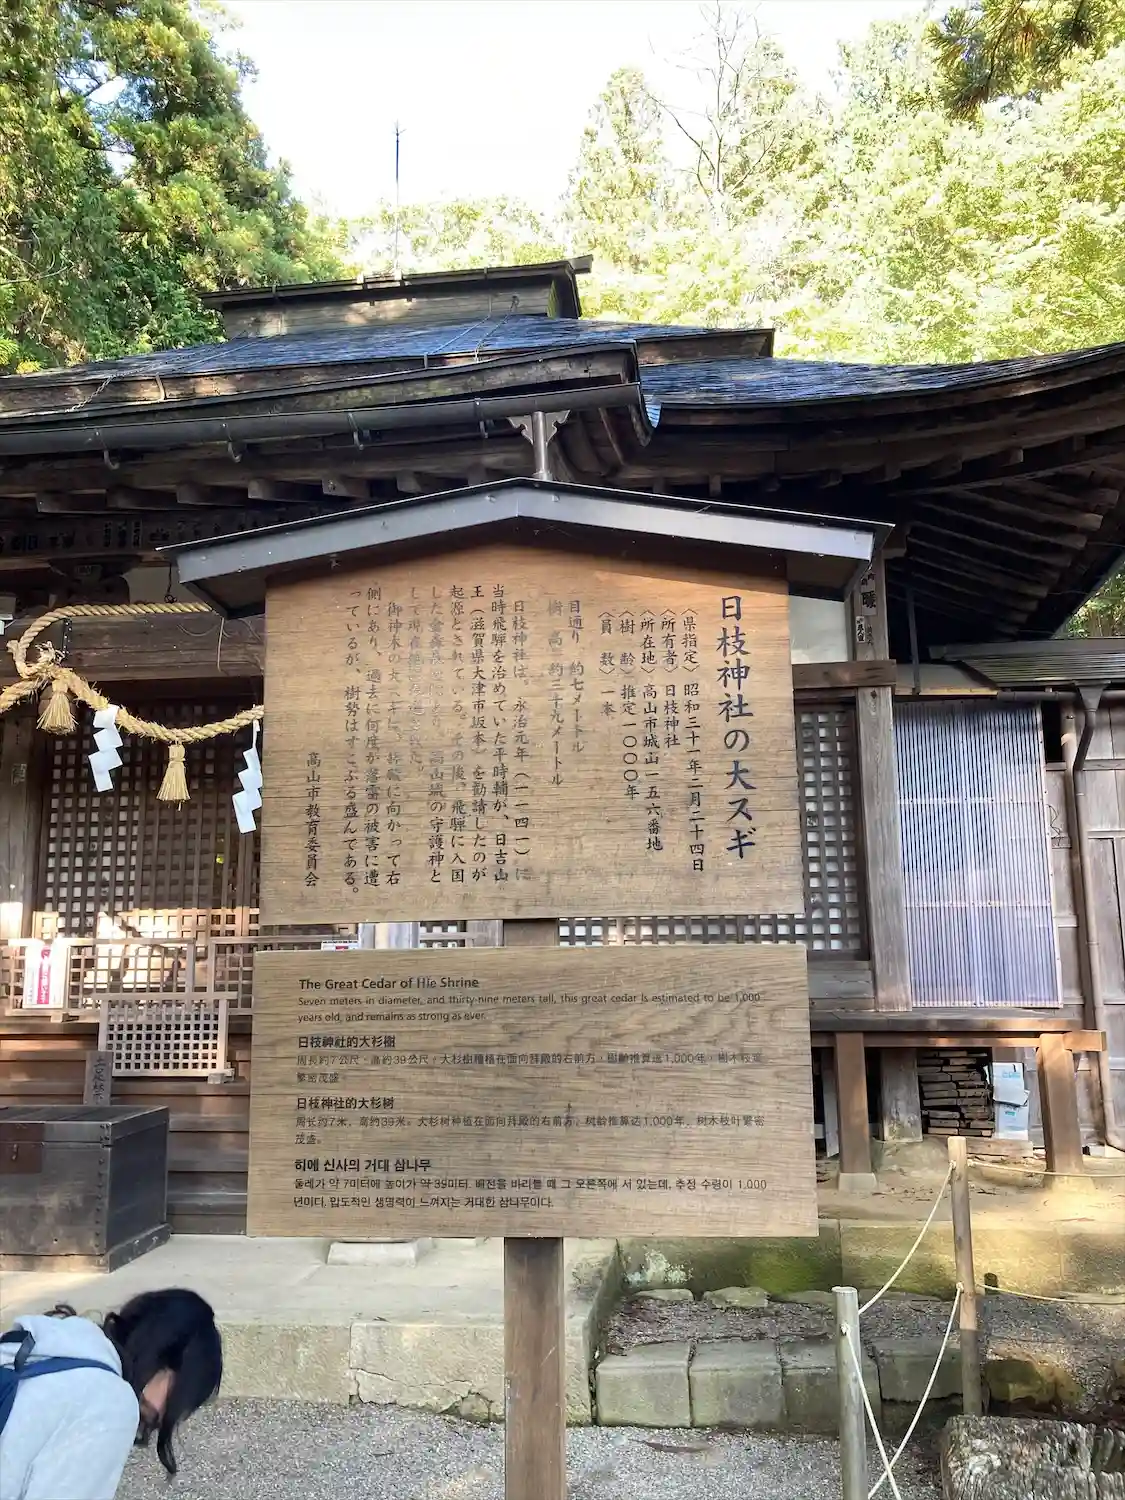 日枝神社の大スギ
〈県指定〉 昭和三十一年二月二十四日
〈所有者〉 日枝神社
〈所在地〉 高山市城山一五六番地
〈樹 齢〉 推定一〇〇〇年
〈員 数〉 一本
目通り 約七メートル
樹 高 約三十九メートル
日枝神社は、永治元年(一一四一)に
当時飛騨を治めていた平時輔が、日吉山
王(滋賀県大津市坂本)を勧請したのが
起源とされている。その後、飛騨に入国
した金森 高山城の守護神と
して現在地
御神木の大スギは、拝殿に向かって右
側にあり、過去に何度か落雷の被害に遭
っているが、樹勢はすこぶる盛んである。
高山市教育委員会
The Great Cedar of HIe Shrine
Seven meters in diameter, and thirty-nine meters tall, this great cedar is estimated to be 1,000
years old, and remains as strong as ever.
日枝神社的大杉樹
周長約7公尺、高約39公尺。大杉樹種植在面向拜殿的右前方,樹齡推算達1,000年,樹木枝葉
繁密茂盛。
日枝神社的大杉树
周长约7米,高约39米。大杉树种植在面向拜殿的右前方,树龄推算达1,000年,树木枝叶繁密
茂盛。
히에 신사의 거대 삼나무
둘레가 약 7미터에 높이가 약 39미터. 배전을 바라볼 때 그 오른쪽에 서 있는데, 추정 수령이 1,000
년이다. 압도적인 생명력이 느껴지는 거대한 삼나무이다.